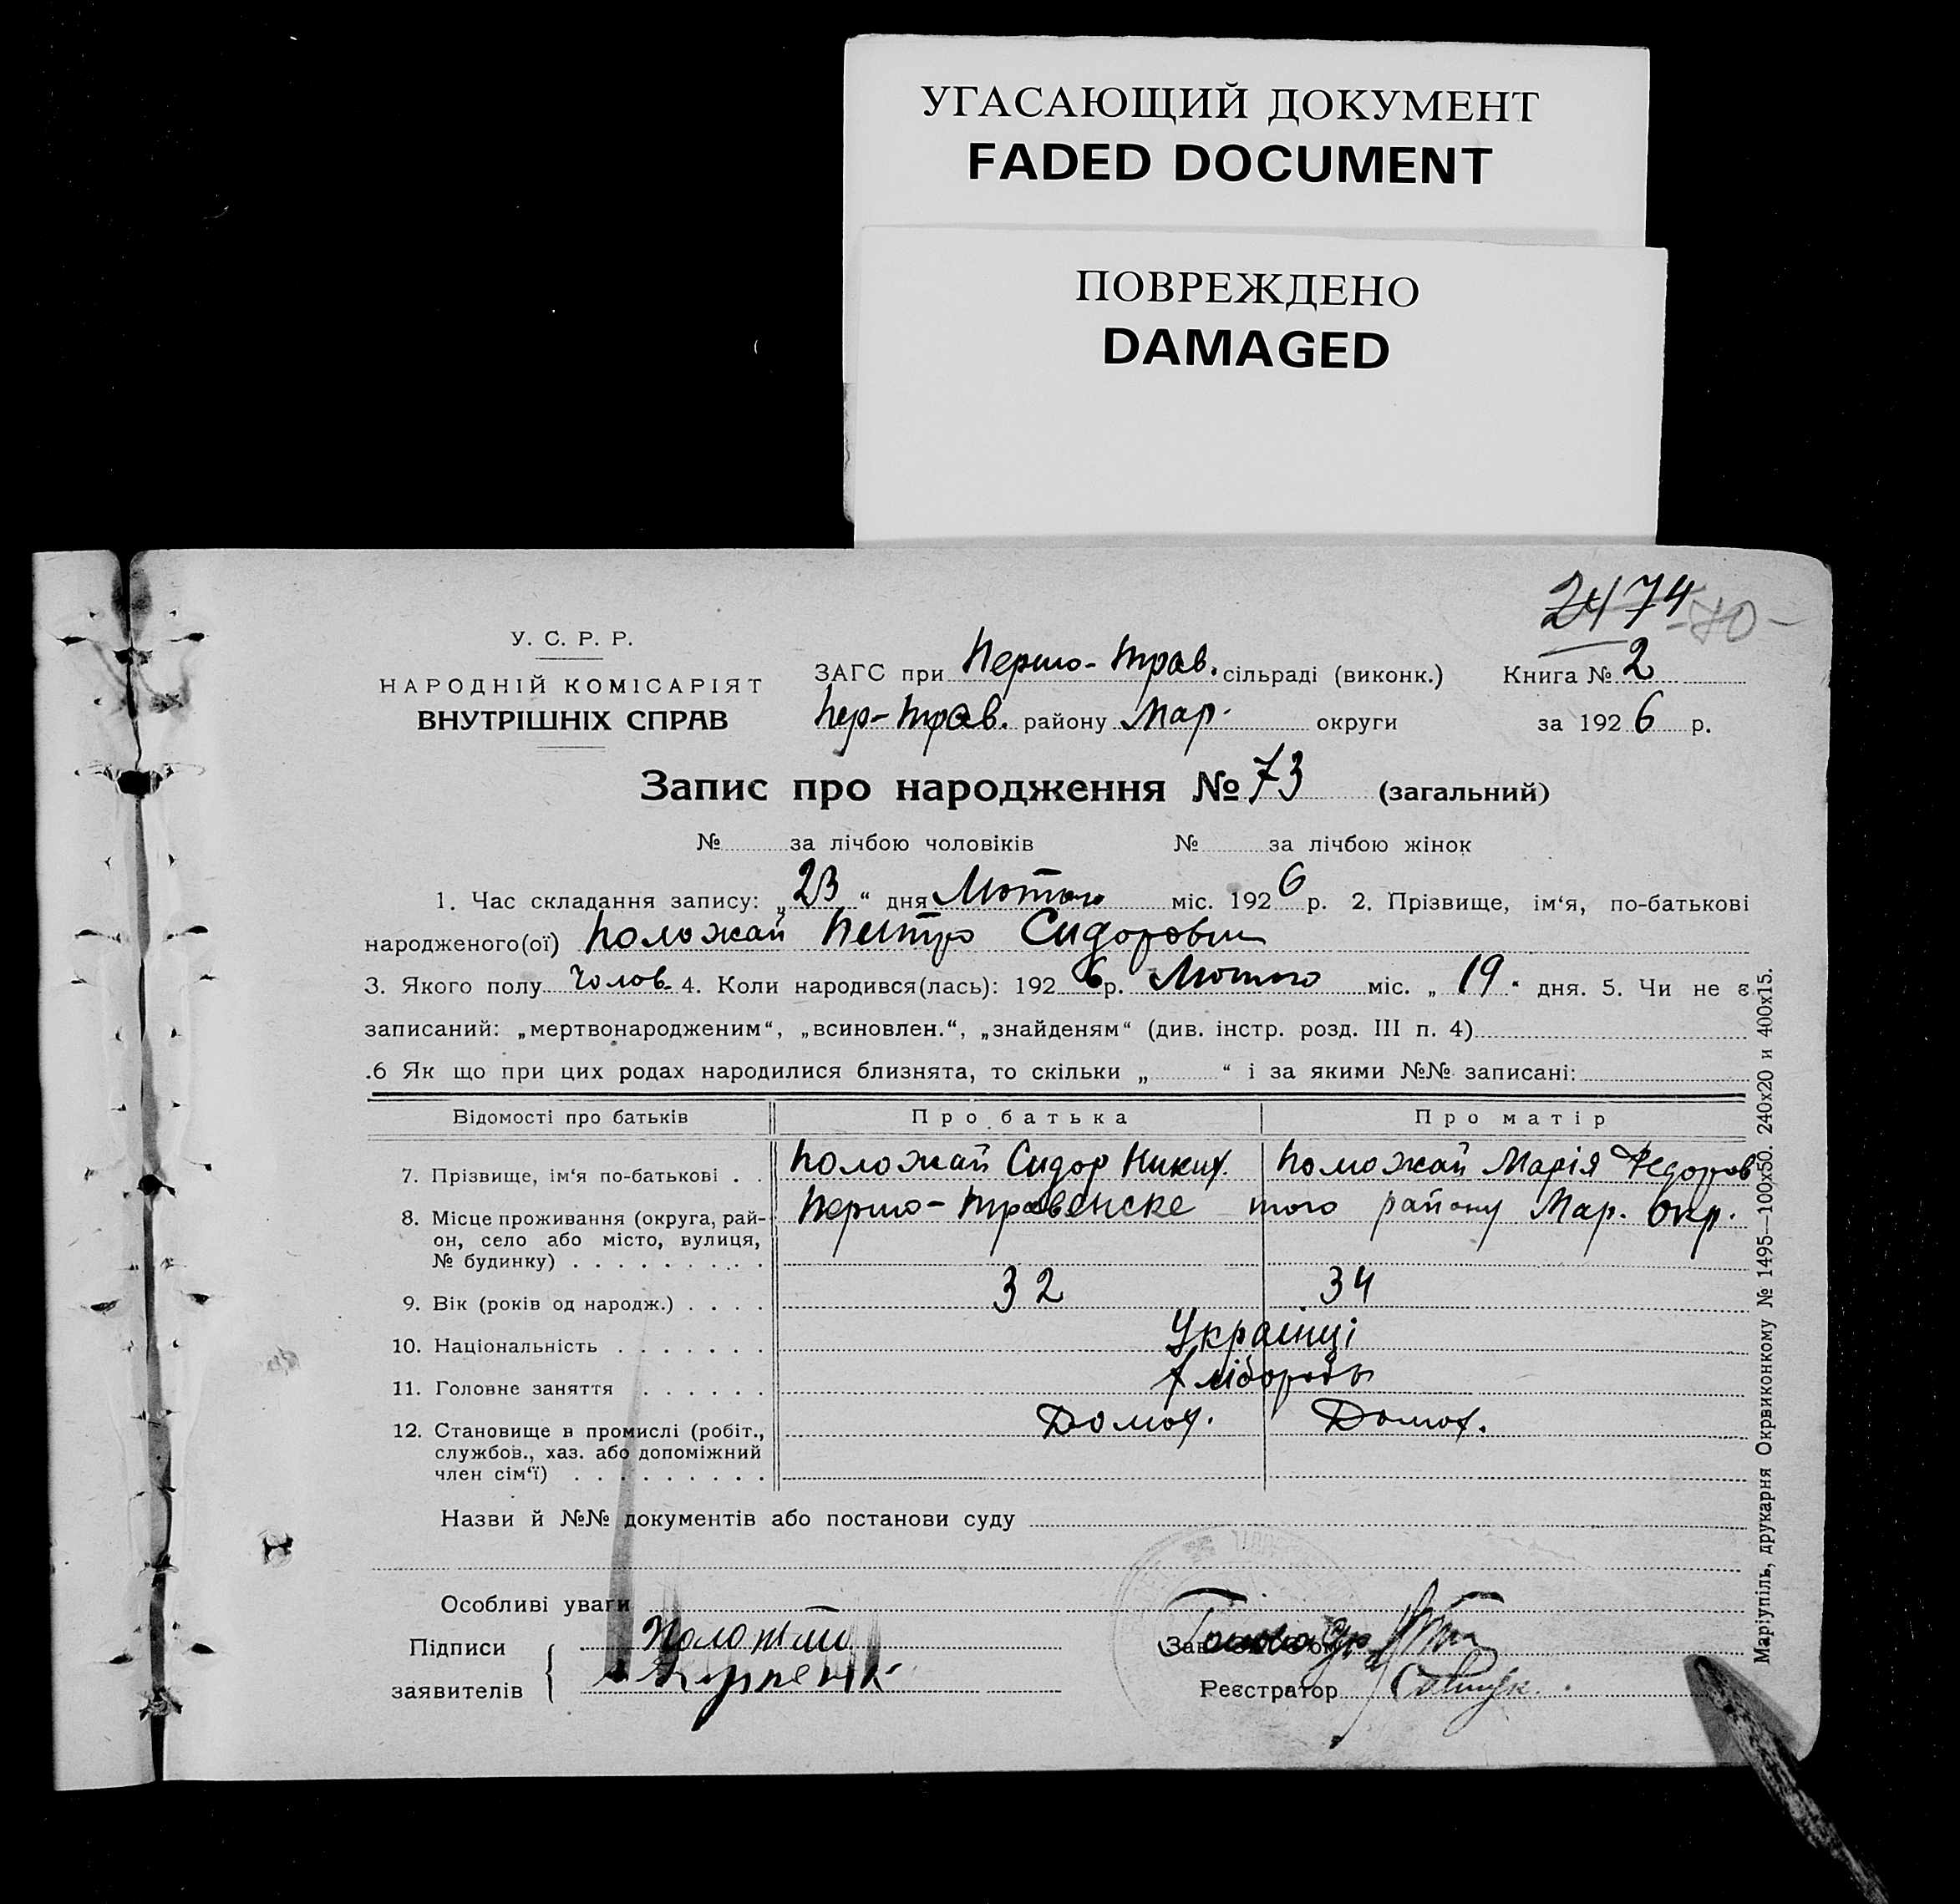 УГАСАЮЩИЙ ДОКУМЕНТ
FADED DOCUMENT
ПОВРЕЖДЕНО
DAMAGED
2474
-70-
У. С. Р. Р.
НАРОДНІЙ КОМІСАРІЯТ
ВНУТРІШНІХ СПРАВ
ЗАГС при Першо-Трав. сільраді (виконк.) Книга № 2
Пер-Трав. району Мар. округи за 1926 р.
Запис про народження № 73 (загальний)
№ за лічбою чоловіків № за лічбою жінок
1. Час складання запису: „23“ дня Лютого міс. 1926 р. 2. Прізвище, ім‘я, по-батькові
народженого(ої) Положай Петро Сидорович
3. Якого полу Чолов. 4. Коли народився(лась): 1926 р. Лютого міс. „19“ дня. 5. Чи не є
записаний: „мертвонародженим“, „всиновлен.“, „знайденям“ (див. інстр. розд. III п. 4)
.6 Як що при цих родах народилися близнята, то скільки „ “ і за якими №№ записані:
Відомості про батьків Про батька Про матір
7. Прізвище, ім‘я по-батькові . . Положай Сидор Никит. Положай Марія Федоров
8. Місце проживання (округа, рай- Першо-Травенске того району Мар. Окр.
он, село або місто, вулиця,
№ будинку) . . . . . . . . .
9. Вік (років од народж.) . . . . 32 34
10. Національність . . . . . . . Українці
11. Головне заняття . . . . . . Хлібороби
12. Становище в промислі (робіт., Домог. Домог.
службов., хаз. або допоміжний
член сім‘ї) . . . . . . . . .
Назви й №№ документів або постанови суду
Особливі уваги
Підписи Положай
заявителів
Зав. Голова
Реєстратор
Маріупіль, друкарня Окрвиконкому № 1495—100х50. 240х20 и 400х15.